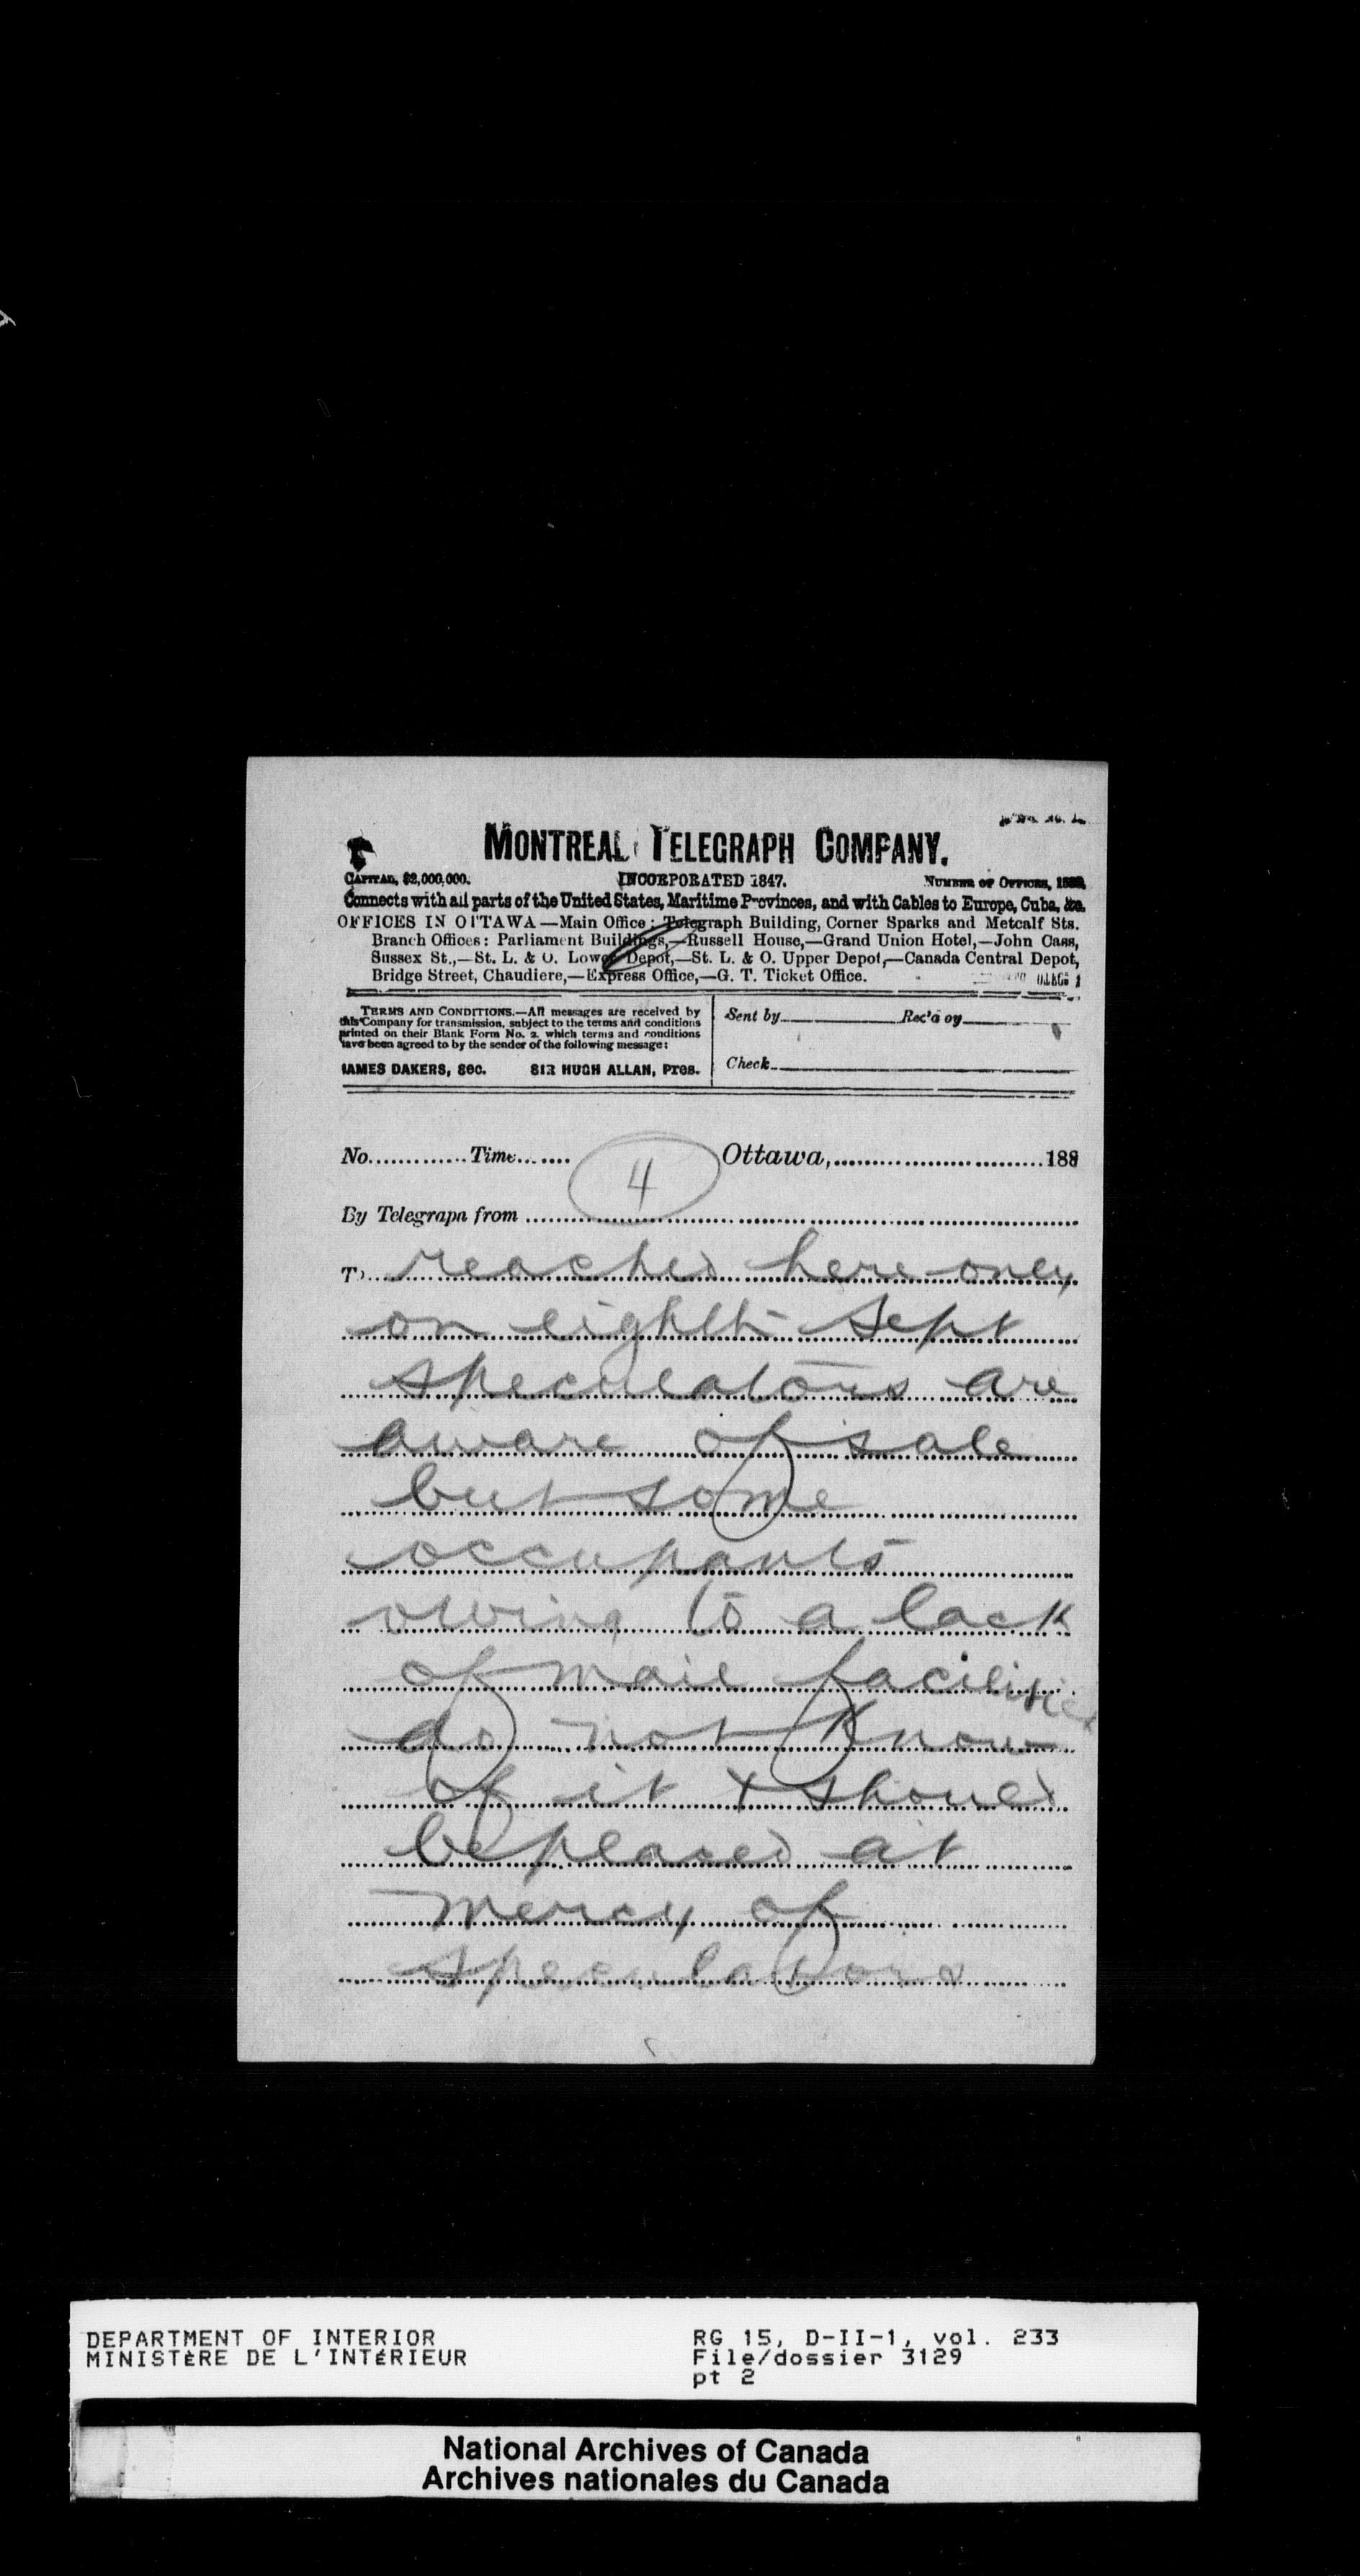 MONTREAL TELEGRAPH COMPANY.
CAPITAL, $2,000,000. INCORPORATED 1847. NUMBER OF OFFICES,
Connects with all parts of the United States, Maritime Provinces, and with Cables to Europe, Cuba, &c.
OFFICES IN OTTAWA—Main Office: Telegraph Building, Corner Sparks and Metcalf Sts.
Branch Offices: Parliament Buildings,—Russell House,—Grand Union Hotel,—John Cass,
Sussex St.,—St. L. & O. Lower Depot,—St. L. & O. Upper Depot,—Canada Central Depot,
Bridge Street, Chaudiere,—Express Office,—G. T. Ticket Office.
TERMS AND CONDITIONS.—All messages are received by
this Company for transmission, subject to the terms and conditions
printed on their Blank Form No. 2, which terms and conditions
have been agreed to by the sender of the following message:
JAMES DAKERS, Sec. SIR HUGH ALLAN, Pres.
Sent by Rec'd by
Check
No. Time Ottawa, 188
4
By Telegraph from
To reached here only
on eighth Sept
speculators are
aware of sale
but some
occupants
owing to a lack
of mail facilities
do not know
of it & should
be placed at
mercy of
speculators
DEPARTMENT OF INTERIOR
MINISTÈRE DE L'INTÉRIEUR
RG 15, D-II-1, vol. 233
File/dossier 3129
pt 2
National Archives of Canada
Archives nationales du Canada